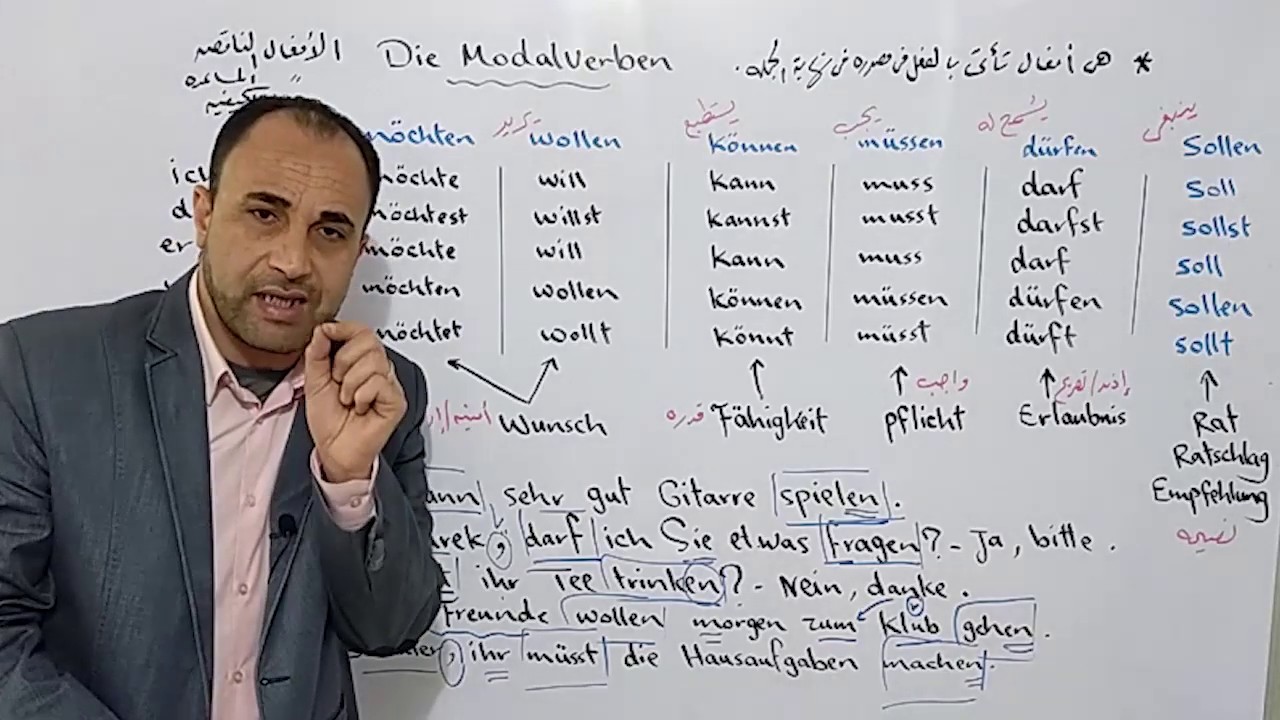 الأفعال الناقصة Die Modalverben * هى أفعال تأتى بالفعل فى مصدره فى نهاية الجملة.
المساعده
يريد يستطيع يجب يُسمح له ينبغى
möchten wollen können müssen dürfen Sollen
ich möchte will kann muss darf Soll
d möchtest willst kannst musst darfst sollst
er möchte will kann muss darf soll
möchten wollen können müssen dürfen sollen
möchtet wollt könnt müsst dürft sollt
واجب إذن/تصريح
أمنية Wunsch قدره Fähigkeit pflicht Erlaubnis Rat
Ratschlag
Empfehlung
نصيحه
ann sehr gut Gitarre spielen.
rek, darf ich Sie etwas fragen? - Ja, bitte.
ihr Tee trinken? - Nein, danke.
Freunde wollen morgen zum Klub gehen.
, ihr müsst die Hausaufgaben machen.